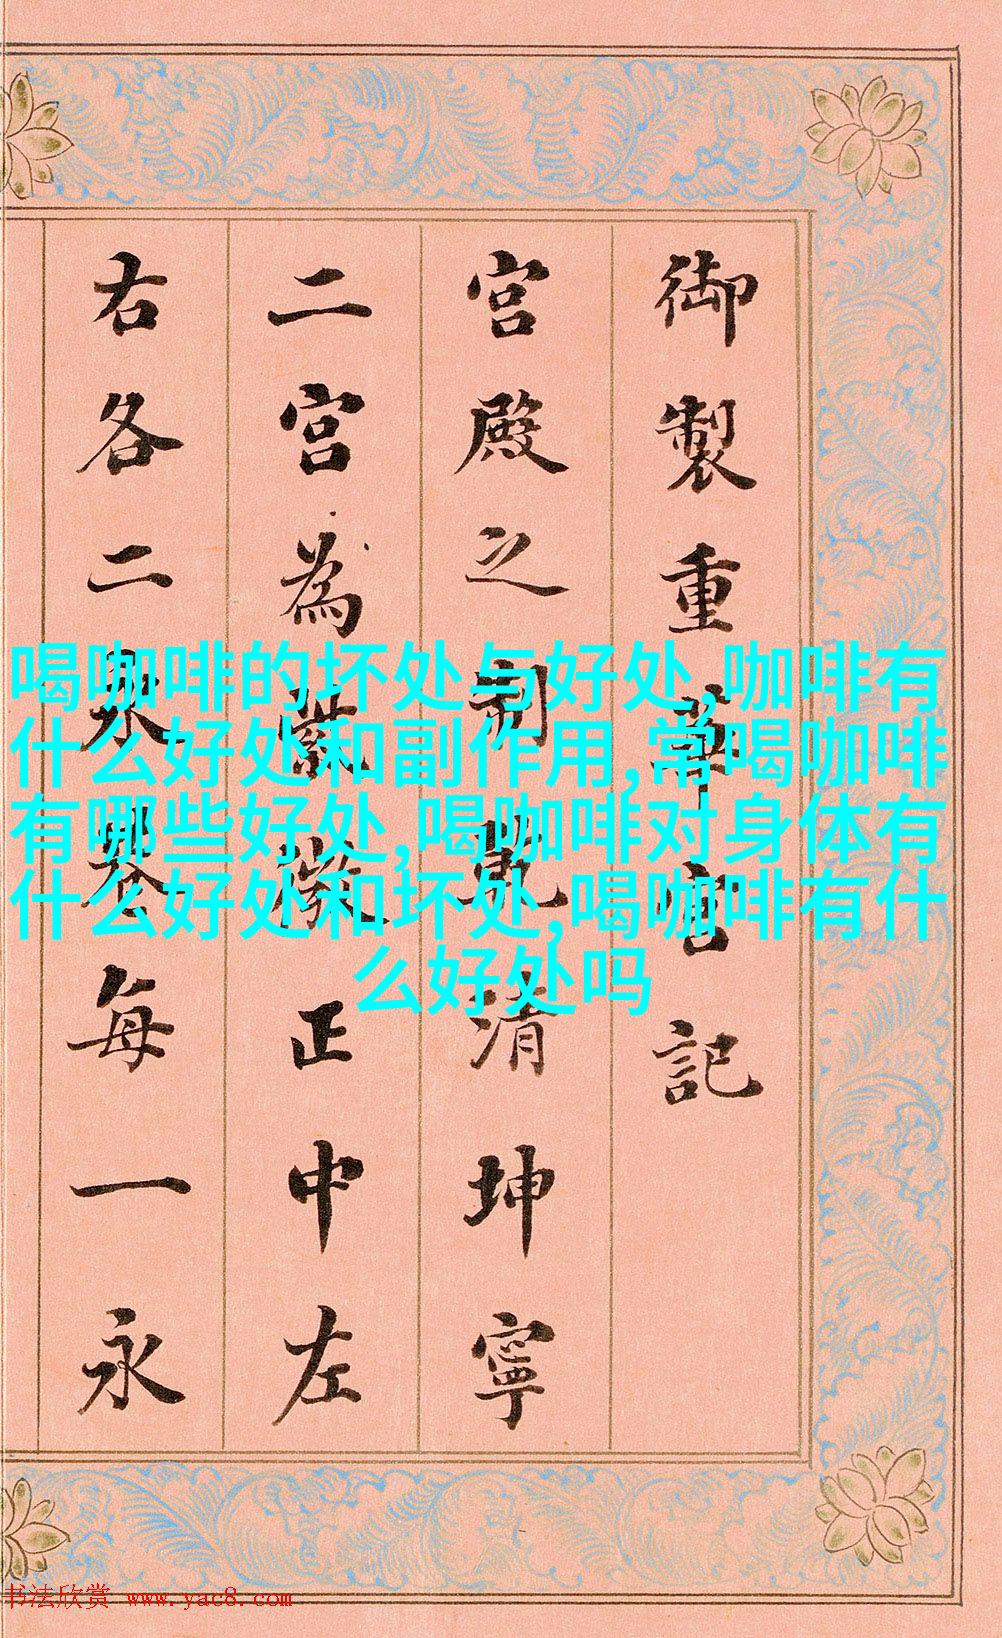 御製重華宮記
宮殿之制清坤寧
二宮為正中左
右各二永巷每一永
喝咖啡的坏处与好处,咖啡有
什么好处和副作用,常喝咖啡
有哪些好处,喝咖啡对身体有
什么好处和坏处,喝咖啡有什
么好处吗
书法欣赏 www.yac8.com